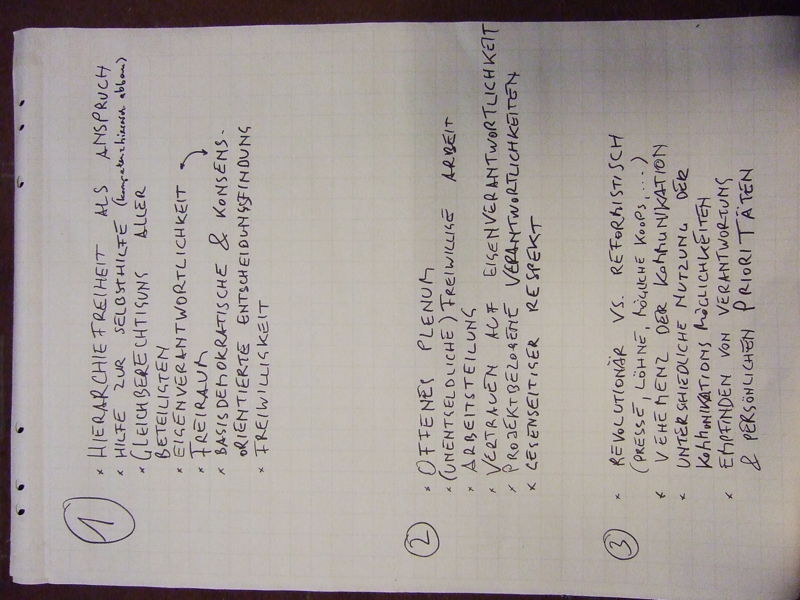 1
× HIERARCHIEFREIHEIT ALS ANSPRUCH
× HILFE ZUR SELBSTHILFE (kompetenzhierarch. abbau)
× GLEICHBERECHTIGUNG ALLER
BETEILIGTEN
× EIGENVERANTWORTLICHKEIT
× FREIRAUM
× BASISDEMOKRATISCHE & KONSENS-
ORIENTIERTE ENTSCHEIDUNGSFINDUNG
× FREIWILLIGKEIT
2
× OFFENES PLENUM
× (UNENTGELDLICHE) FREIWILLIGE ARBEIT
× ARBEITSTEILUNG
× VERTRAUEN AUF EIGENVERANTWORTLICHKEIT
× PROJEKTBEZOGENE VERANTWORTLICHKEITEN
× GEGENSEITIGER RESPEKT
3
× REVOLUTIONÄR VS. REFORMISTISCH
(PRESSE, LÖHNE, MÖGLICHE KOOPS, ...)
× VEHEMENZ DER KOMMUNIKATION
× UNTERSCHIEDLICHE NUTZUNG DER
KOMMUNIKATIONSMÖGLICHKEITEN
× EMPFINDEN VON VERANTWORTUNG
& PERSÖNLICHEN PRIORITÄTEN